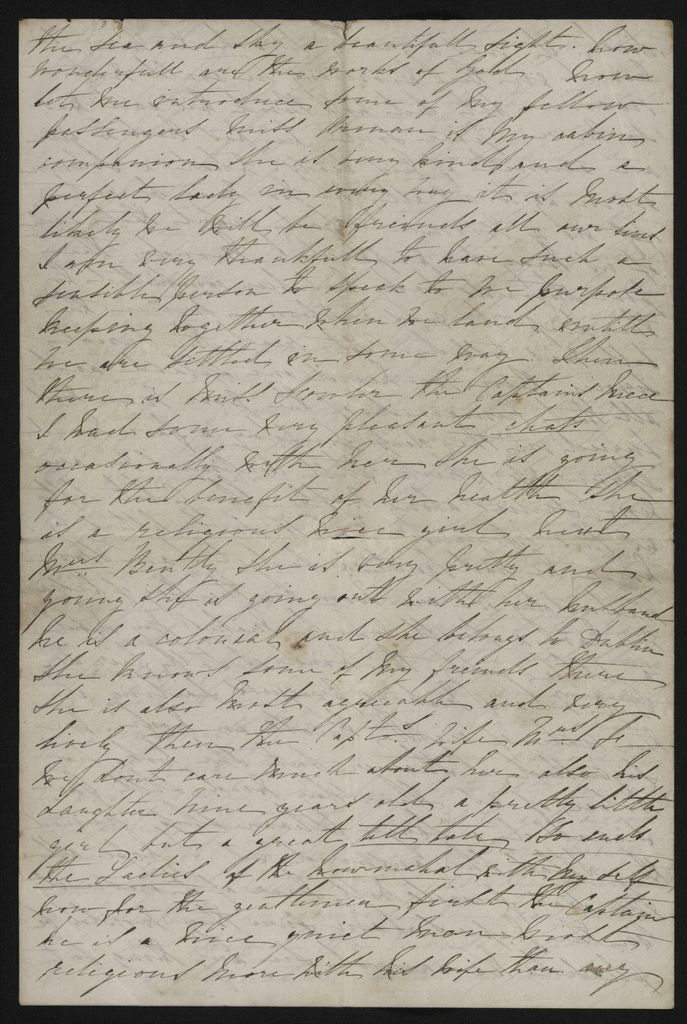 the sea and sky a beautifull sight. how
wonderfull are the works of God now
let me introduce some of my fellow
passengers miss is my cabin
companion she is very kind and a
perfect lady in every way it is most
likely we will be friends all our lives
I am very thankfull to have such a
sensible person to speak to we purpose
keeping together when we land untill
we are settled in some way. Then
there is Miss the Captains niece
I had some very pleasant chats
occasionally with her she is going
for the benefit of her health she
is a religious nice girl next
Mrs Bently she is very pretty and
young she is going out with her husband
he is a colonial and she belongs to Dublin
she knows some of my friends there
she is also most agreeable and very
lively then the Capts. wife Mrs
we dont care much about her also his
daughter nine years old a pretty little
girl but a great tell tale So ends
the Ladies of the with my self
now for the gentlemen first the Captain
he is a nice quiet man most
religious more with his wife than any